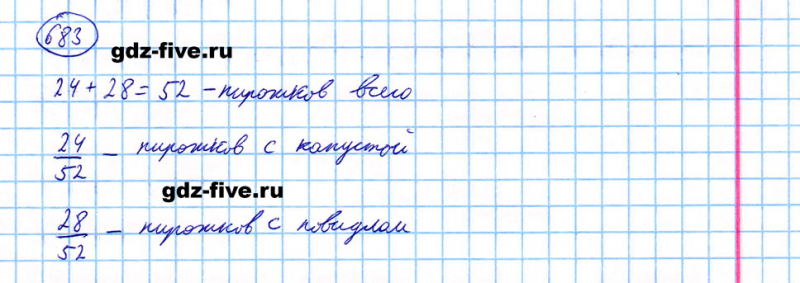 683
gdz-five.ru
24 + 28 = 52 – пирожков всего
24/52 – пирожков с капустой
gdz-five.ru
28/52 – пирожков с повидлом